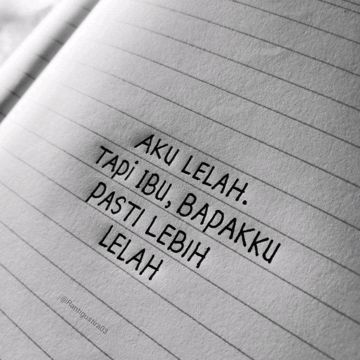 AKU LELAH.
TAPi IBU, BAPAKKU
PASTI LEBIH
LELAH